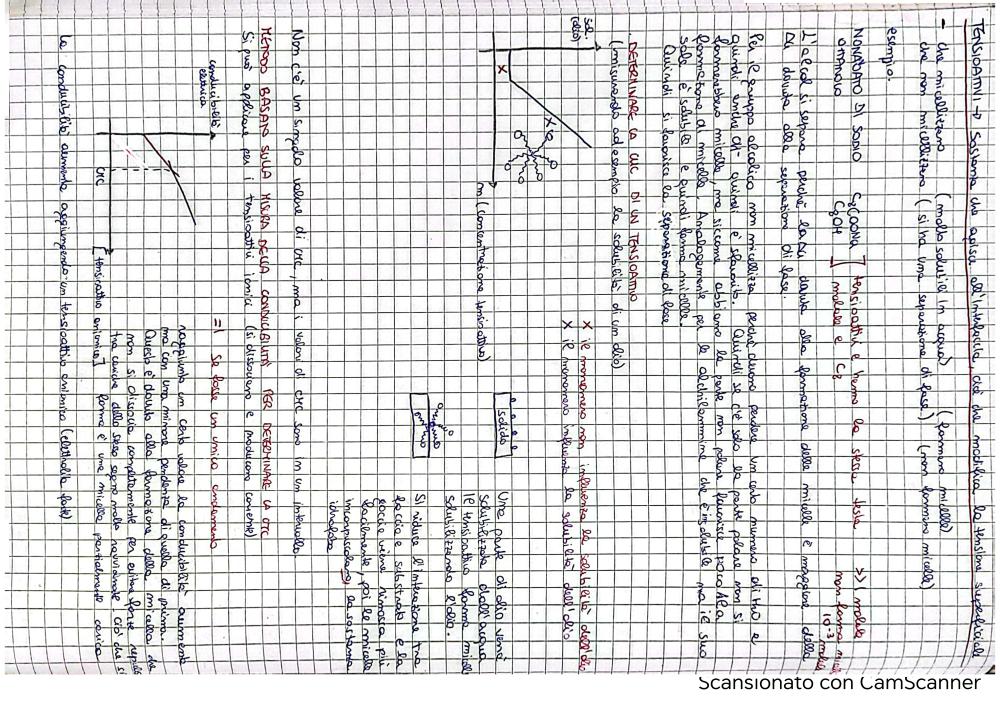 TENSIOATTIVI → Sostanza che agisce all'interfaccia, cioè che modifica la tensione superficiale
- che micellizzano (molto solubili in acqua) (formano micelle)
che non micellizzano (si ha una separazione di fase) (non formano micelle)
esempio:
NONANOATO DI SODIO C8COONa ] tensioattivi e hanno la stessa testa >> molale
OTTANOLO C8OH ] molale e C8 non forma micelle 10-3 molale
L'alcol si separa perché la Δμ dovuta alla formazione delle micelle è maggiore della
Δμ dovuta alla separazione di fase.
Per il gruppo alcolico non micellizza perché devono perdere un certo numero di H2O e
quindi anche quindi è sfavorito. Quindi se c'è solo la parte polare non si
formerebbero micelle, ma siccome abbiamo la parte non polare favorisce poco la
formazione di micelle. Analogamente per le alchilammine che è insolubile ma il suo
sale è solubile e quindi forma micelle.
Quindi si favorisce la separazione di fase
DETERMINARE LA CMC DI UN TENSIOATTIVO
(misurando ad esempio la solubilità di un olio)
sol. (olio)
X
X
m (concentrazione tensioattivo)
X il monomero non influenza la solubilità dell'olio
X il monomero influenza la solubilità dell'olio
solido
Una parte di olio verrà
solubilizzata dall'acqua
Il tensioattivo forma micelle
solubilizzando l'olio.
Si riduce l'interazione tra
goccia e substrato e la
goccia viene rimossa più
facilmente, poi le micelle
incapsulano la sostanza
idrofoba
Non c'è un singolo valore di CMC, ma i valori di CMC sono in un intervallo
METODO BASATO SULLA MISURA DELLA CONDUCIBILITÀ PER DETERMINARE LA CMC
Si può applicare per i tensioattivi ionici (si dissociano e producono corrente)
conducibilità
elettrica
CMC
[tensioattivo anionico]
=| Se fosse un unico andamento
raggiunto un certo valore la conducibilità aumenta
ma con una minore pendenza di quella di prima.
Questo è dovuto alla formazione della micella che
non si dissocia completamente per evitare forte repulsione
tra cariche dello stesso segno molto ravvicinate. Ciò che si
forma è una micella parzialmente carica
La conducibilità aumenta aggiungendo un tensioattivo anionico (elettrolita forte)
Scansionato con CamScanner